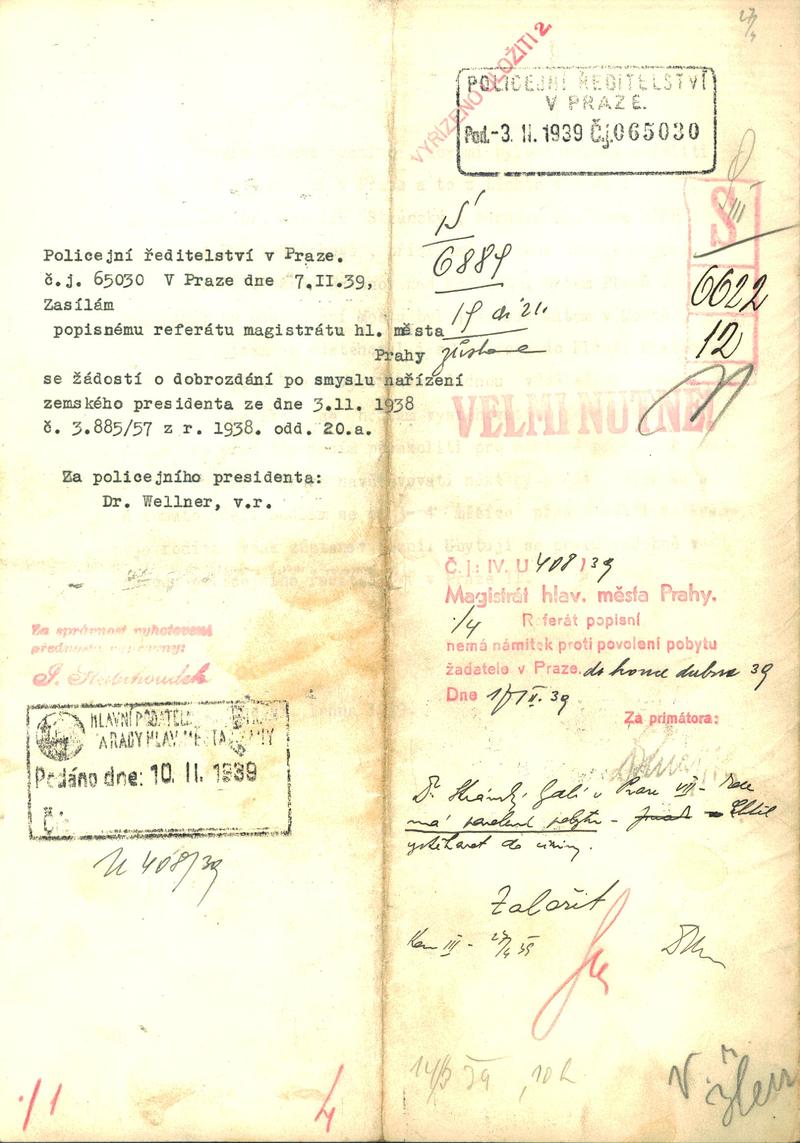 27/4
VYŘÍZENO ULOŽITI 2
POLICEJNÍ ŘEDITELSTVÍ
V PRAZE.
Pod.-3. II. 1939 Č.j.065030
6889
III
6622
12
VELMI NUTNÉ!
Policejní ředitelství v Praze.
č.j. 65030 V Praze dne 7.II.39,
Zasílám
popisnému referátu magistrátu hl. města
Prahy
se žádostí o dobrozdání po smyslu nařízení
zemského presidenta ze dne 3.11. 1938
č. 3.885/57 z r. 1938. odd. 20.a.
Za policejního presidenta:
Dr. Wellner, v.r.
Za správnost vyhotovení
přednosta výpravny:
HLAVNÍ PODATELNA
RADY HLAV. MĚSTA PRAHY
Podáno dne: 10. II. 1939
Č.
U 408/39
Č.j: IV. U 408/39
Magistrát hlav. města Prahy.
/4 Referát popisní
nemá námitek proti povolení pobytu
žadatele v Praze. do konce dubna 39
Dne II. 39
Za primátora:
v Praze VII-
má povolení pobytu -
do ciziny.
Založit
III - 27/4 39
14/3 39, 10 h
/1
4